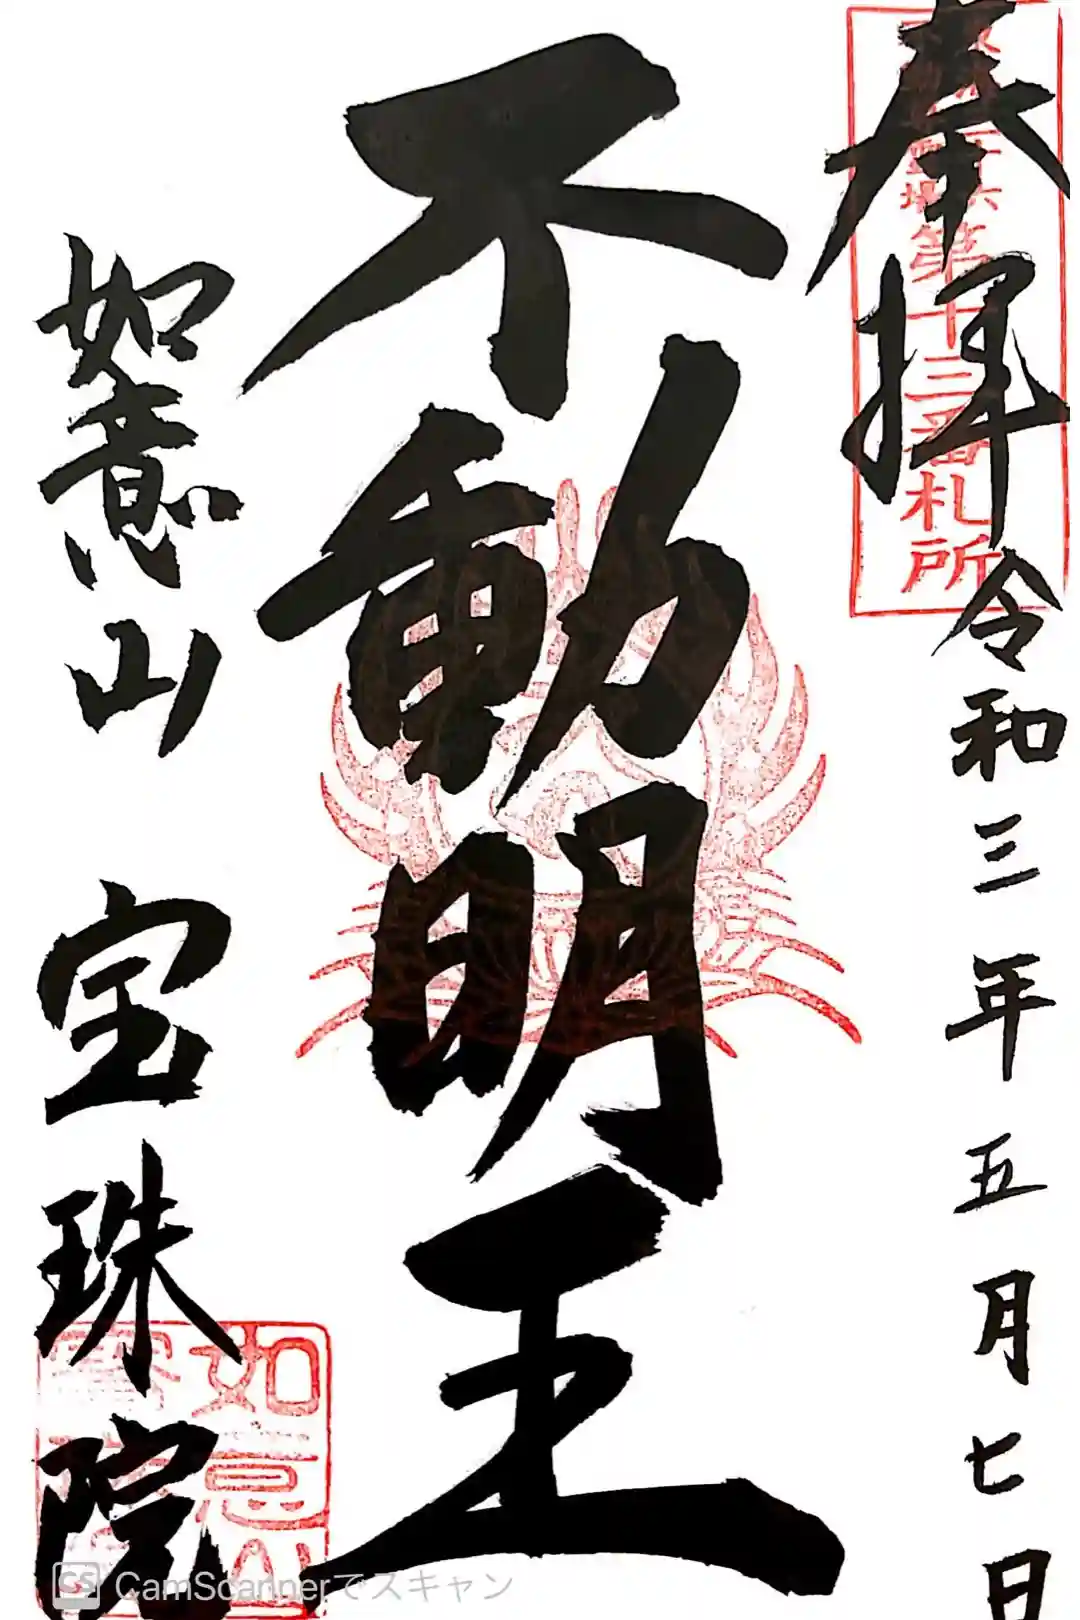 奉拝
令和三年五月七日
第十三番札所
不動明王
如意山 宝珠院
如意山
CamScannerでスキャン